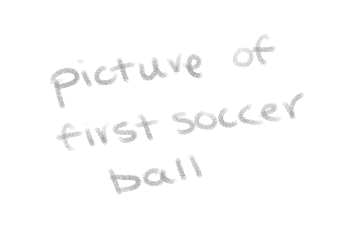 Picture of
first soccer
ball